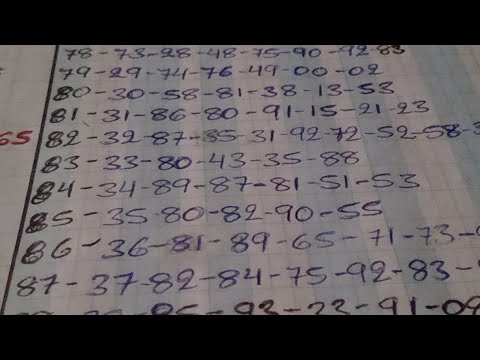 78-73-28-48-75-90-92-83
79-29-74-76-49-00-02
80-30-58-81-38-13-53
81-31-86-80-91-15-21-23
65 82-32-87-35-31-92-72-52-58-3
83-33-80-43-35-88
84-34-89-87-81-51-53
85-35-80-82-90-55
86-36-81-89-65-71-73-
87-37-82-84-75-92-83-
93-23-91-09